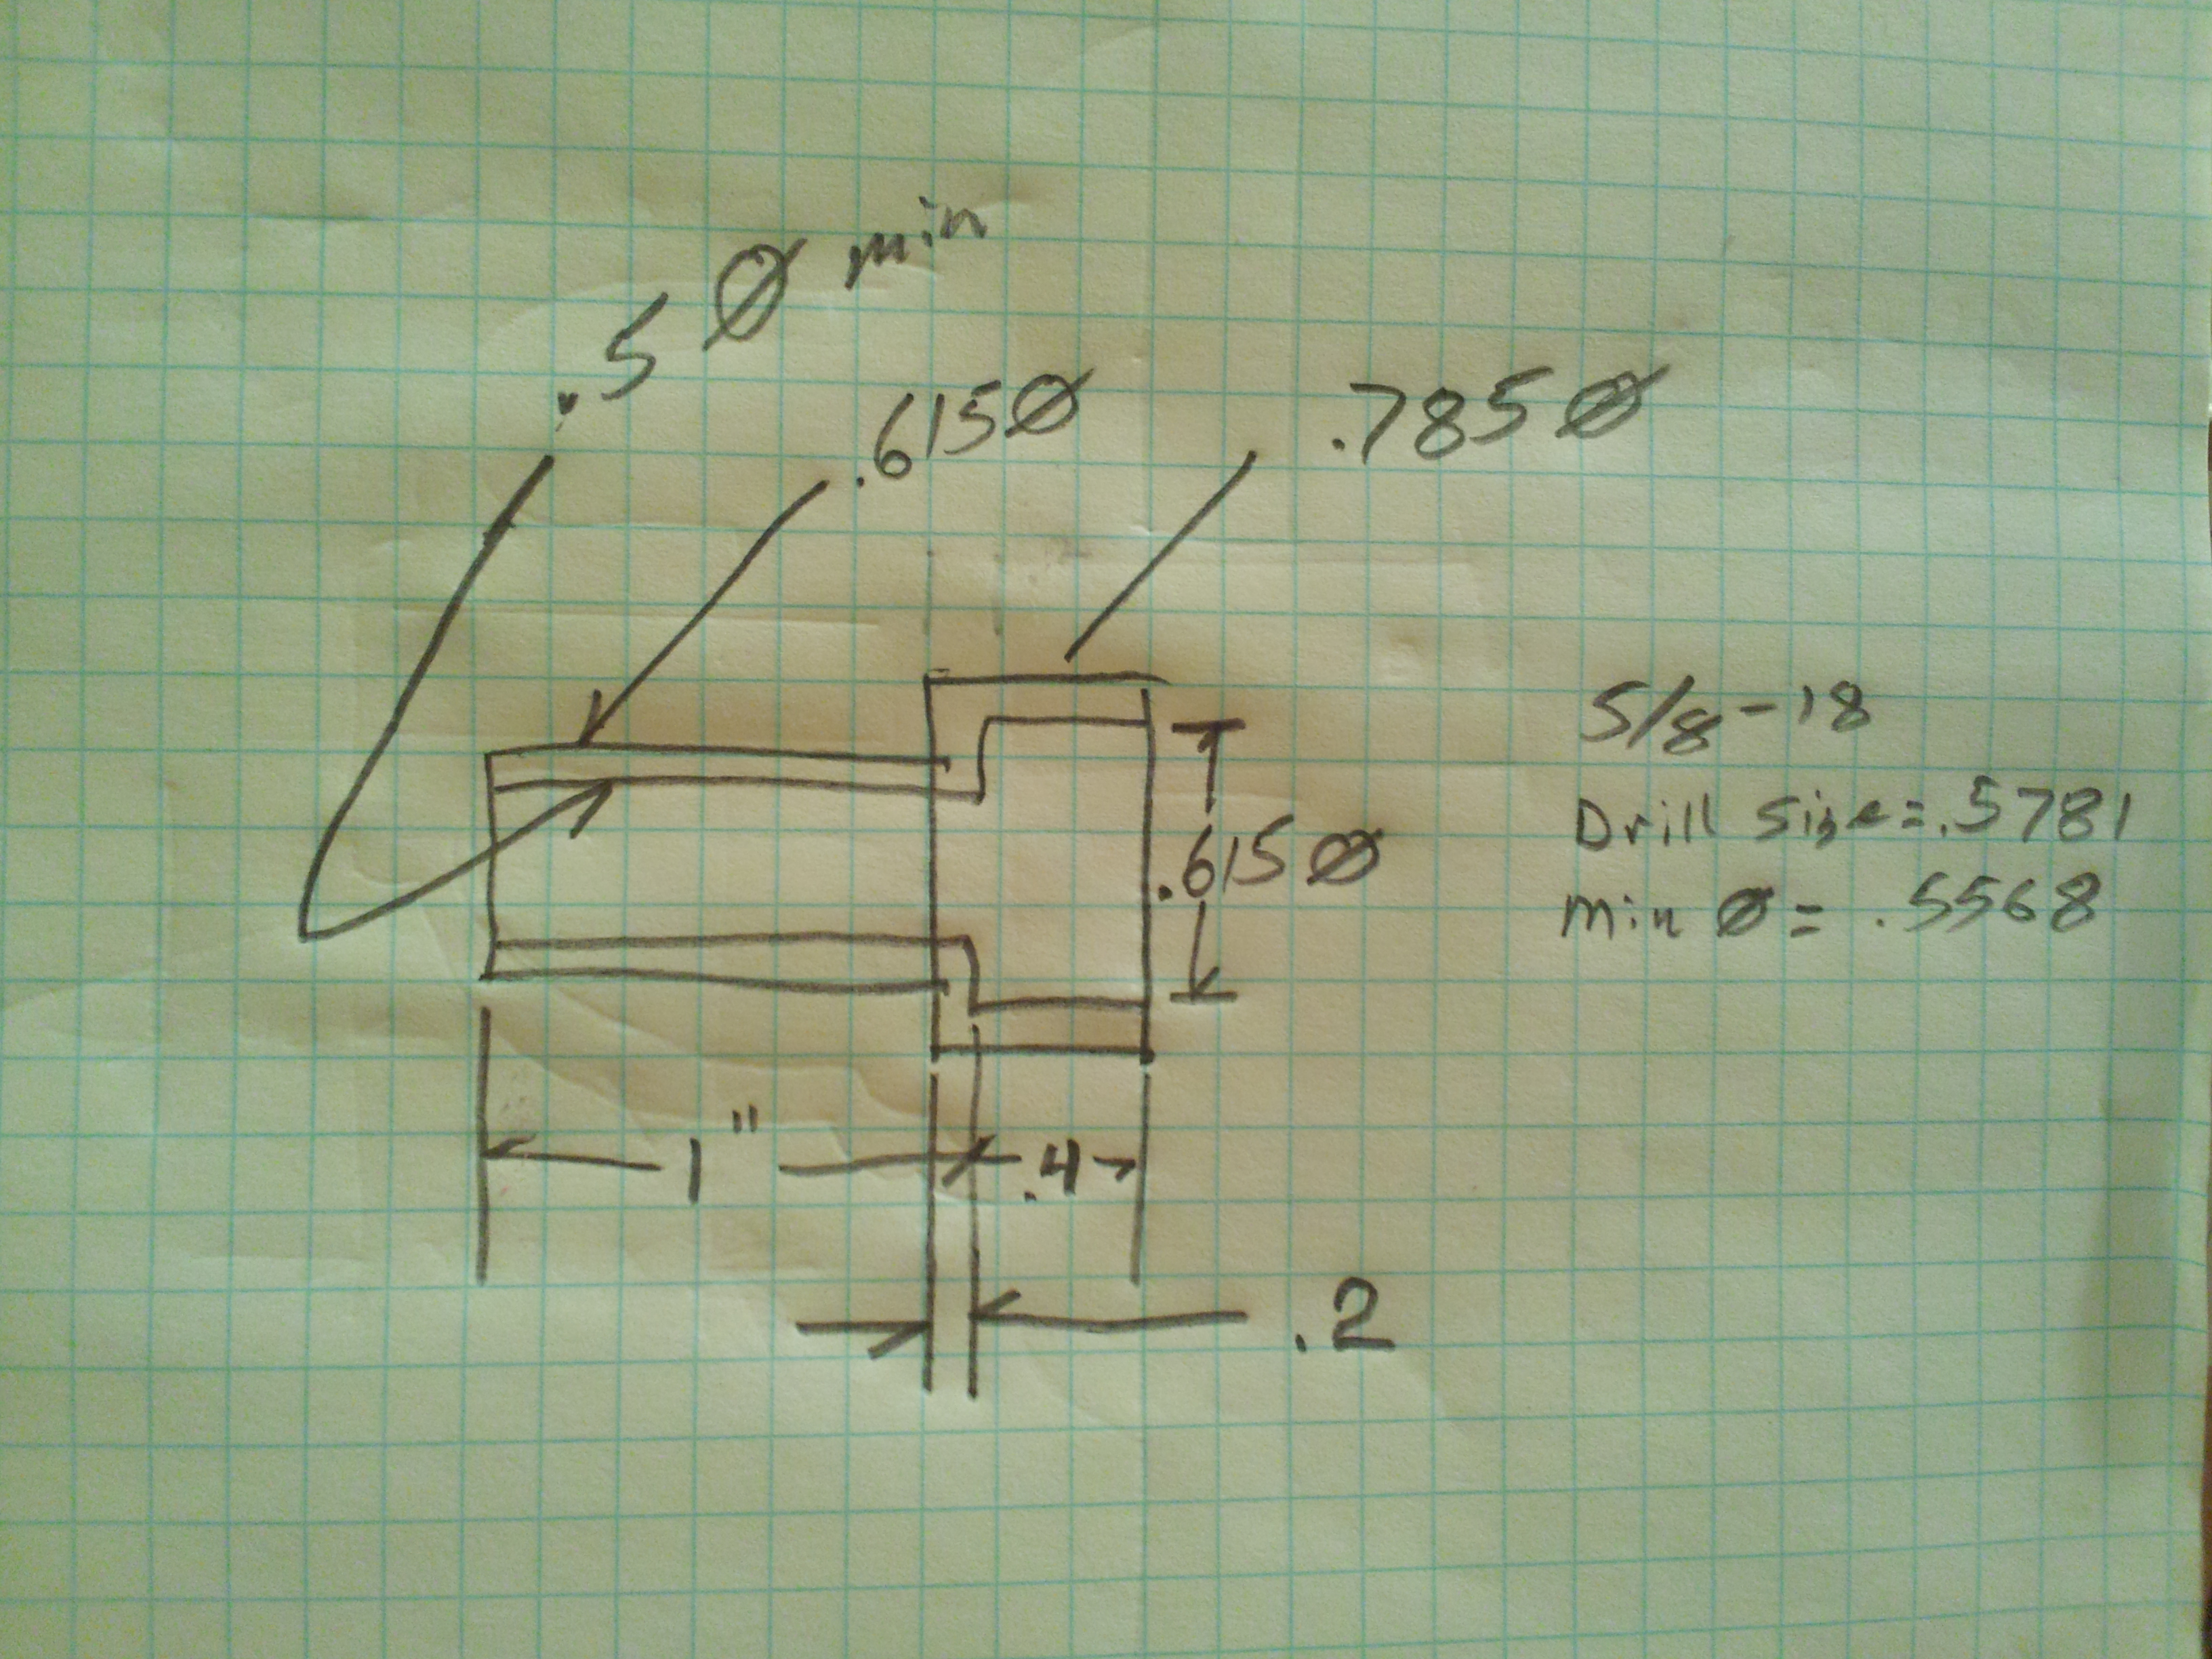 .5 Ø min
.615Ø
.785Ø
5/8-18
Drill size=.5781
min Ø = .5568
.615Ø
1"
.4
.2